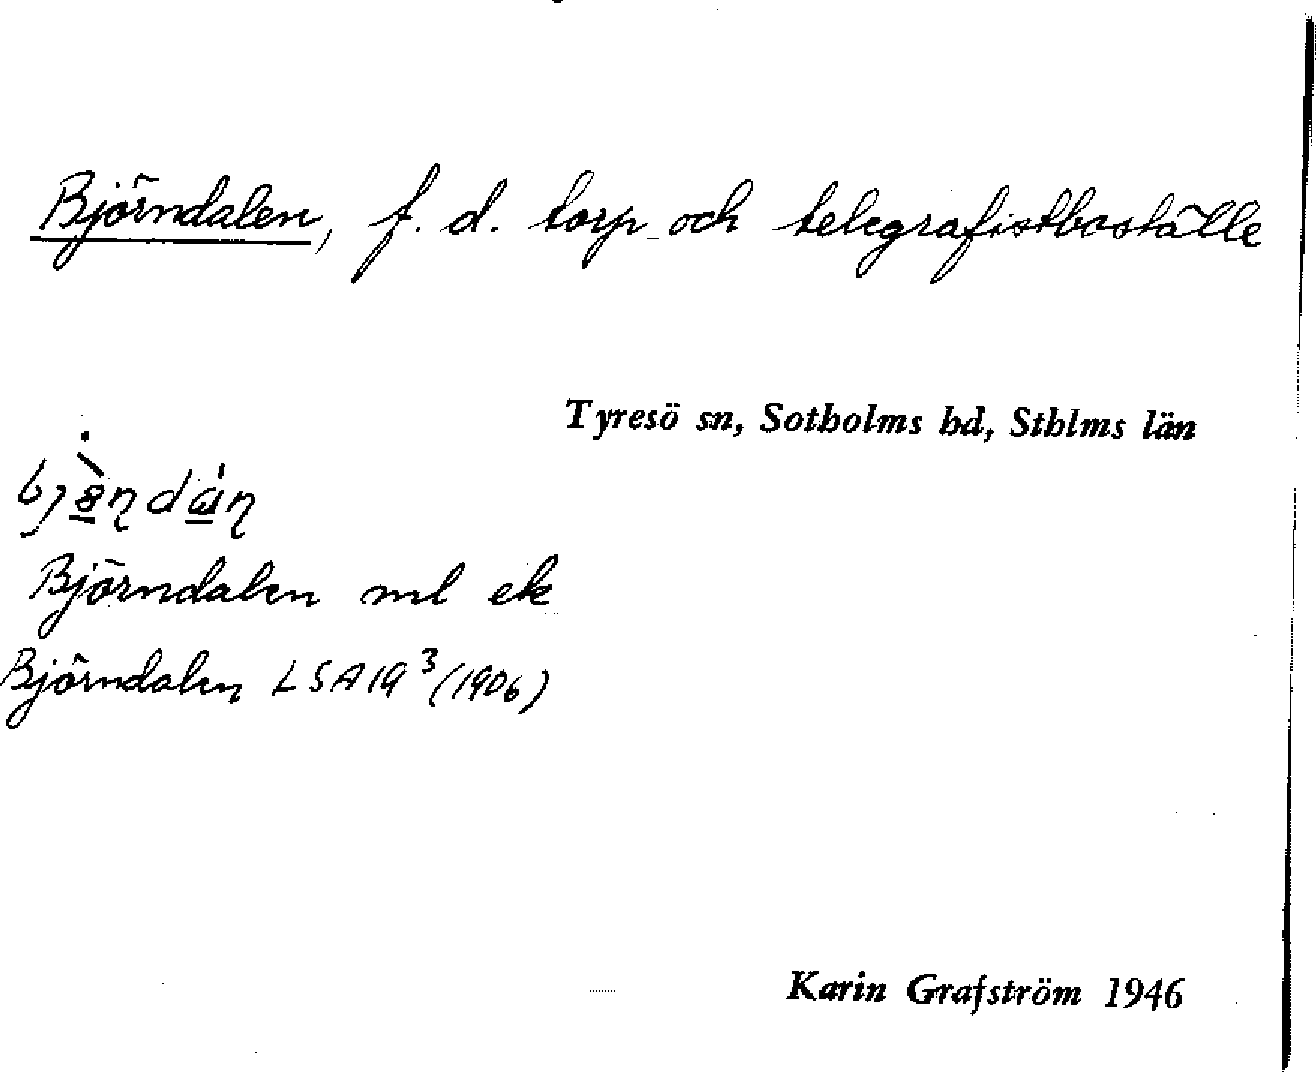 Björndalen, f. d. torp och telegrafistboställe
Tyresö sn, Sotholms hd, Sthlms län
Björndalen ml ek
Björndalen LSA 19³ (1906)
Karin Grafström 1946